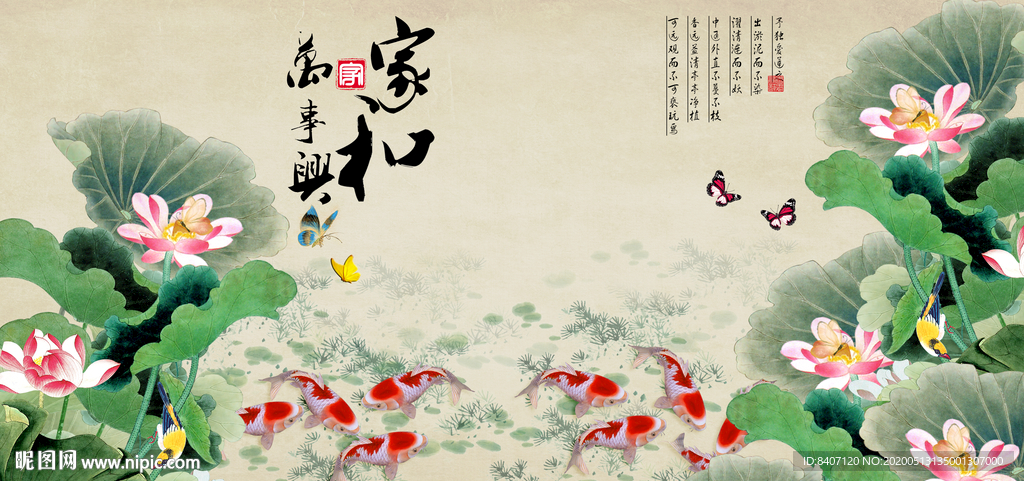 家和
萬事興
家
予独爱莲之
出淤泥而不染
濯清涟而不妖
中通外直不蔓不枝
香远益清亭亭净植
可远观而不可亵玩焉
昵图网 www.nipic.com
ID:8407120 NO:20200513135001307000